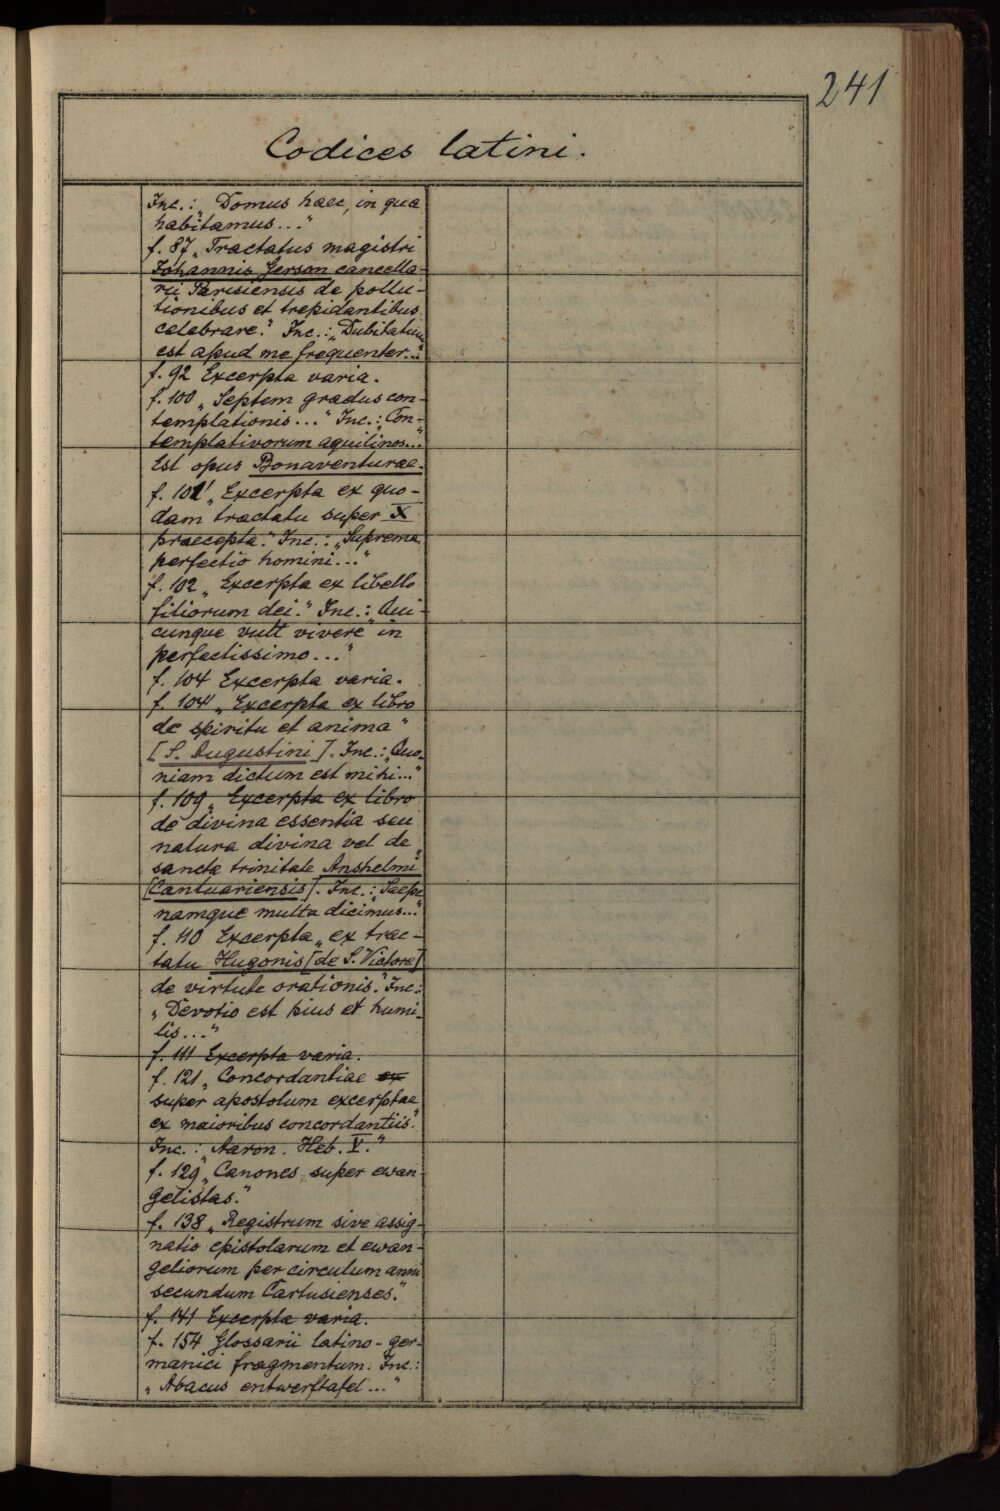 241
Codices latini.
Inc.: „Domus haec, in qua
habitamus..."
f. 87 „Tractatus magistri
Johannis Gerson cancella-
rii Parisiensis de pollu-
tionibus et trepidantibus
celebrare." Inc.: „Dubitatum
est apud me frequenter..."
f. 92 Excerpta varia.
f. 100 „Septem gradus con-
templationis..." Inc.: „Con-
templativorum aquilinos..."
Est opus Bonaventurae.
f. 101' „Excerpta ex quo-
dam tractatu super X
praecepta." Inc.: „Suprema
perfectio homini..."
f. 102 „Excerpta ex libello
filiorum dei." Inc.: „Qui-
cunque vult vivere in
perfectissimo..."
f. 104 Excerpta varia.
f. 104' „Excerpta ex libro
de spiritu et anima"
[S. Augustini]. Inc.: „Quo-
niam dictum est mihi..."
f. 109 „Excerpta ex libro
de divina essentia seu
natura divina vel de
sancta trinitate Anshelmi"
[Cantuariensis]. Inc.: „Saepe
namque multa dicimus..."
f. 110 Excerpta „ex trac-
tatu Hugonis [de S. Victore]
de virtute orationis." Inc.:
„Devotio est pius et humi-
lis..."
f. 111 Excerpta varia.
f. 121 „Concordantiae ex
super apostolum excerptae
ex maioribus concordantiis."
Inc.: „Aaron. Heb. V."
f. 129 „Canones super ewan-
gelistas."
f. 138 „Registrum sive assig-
natio epistolarum et ewan-
geliorum per circulum anni
secundum Cartusienses."
f. 141 Excerpta varia.
f. 154 Glossarii latino-ger-
manici fragmentum. Inc.:
„Abacus entwerftafel..."